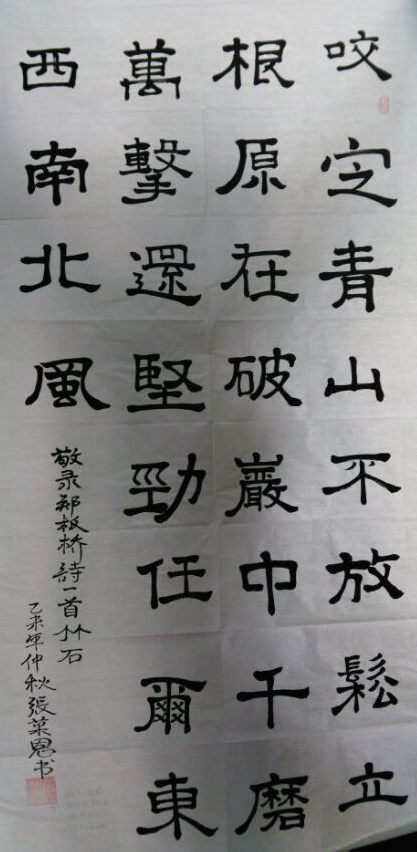 咬定青山不放鬆立
根原在破巖中千磨
萬擊還堅勁任爾東
西南北風
敬录郑板桥詩一首竹石
乙未年仲秋張葉恩书